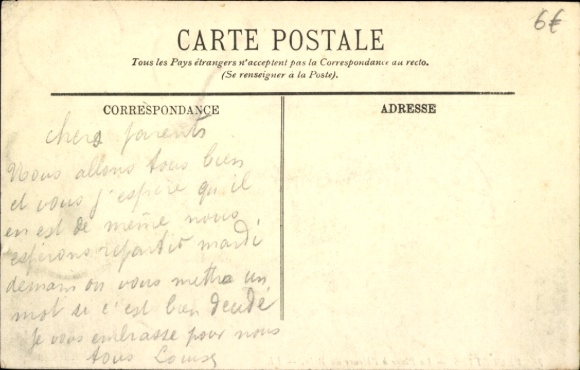 6€
CARTE POSTALE
Tous les Pays étrangers n'acceptent pas la Correspondance au recto.
(Se renseigner à la Poste).
CORRESPONDANCE
ADRESSE
chers parents
Nous allons tous bien
et vous j'espère qu'il
en est de même nous
espérons repartir mardi
demain on vous mettra un
mot si c'est bien décidé
je vous embrasse pour nous
tous Louise